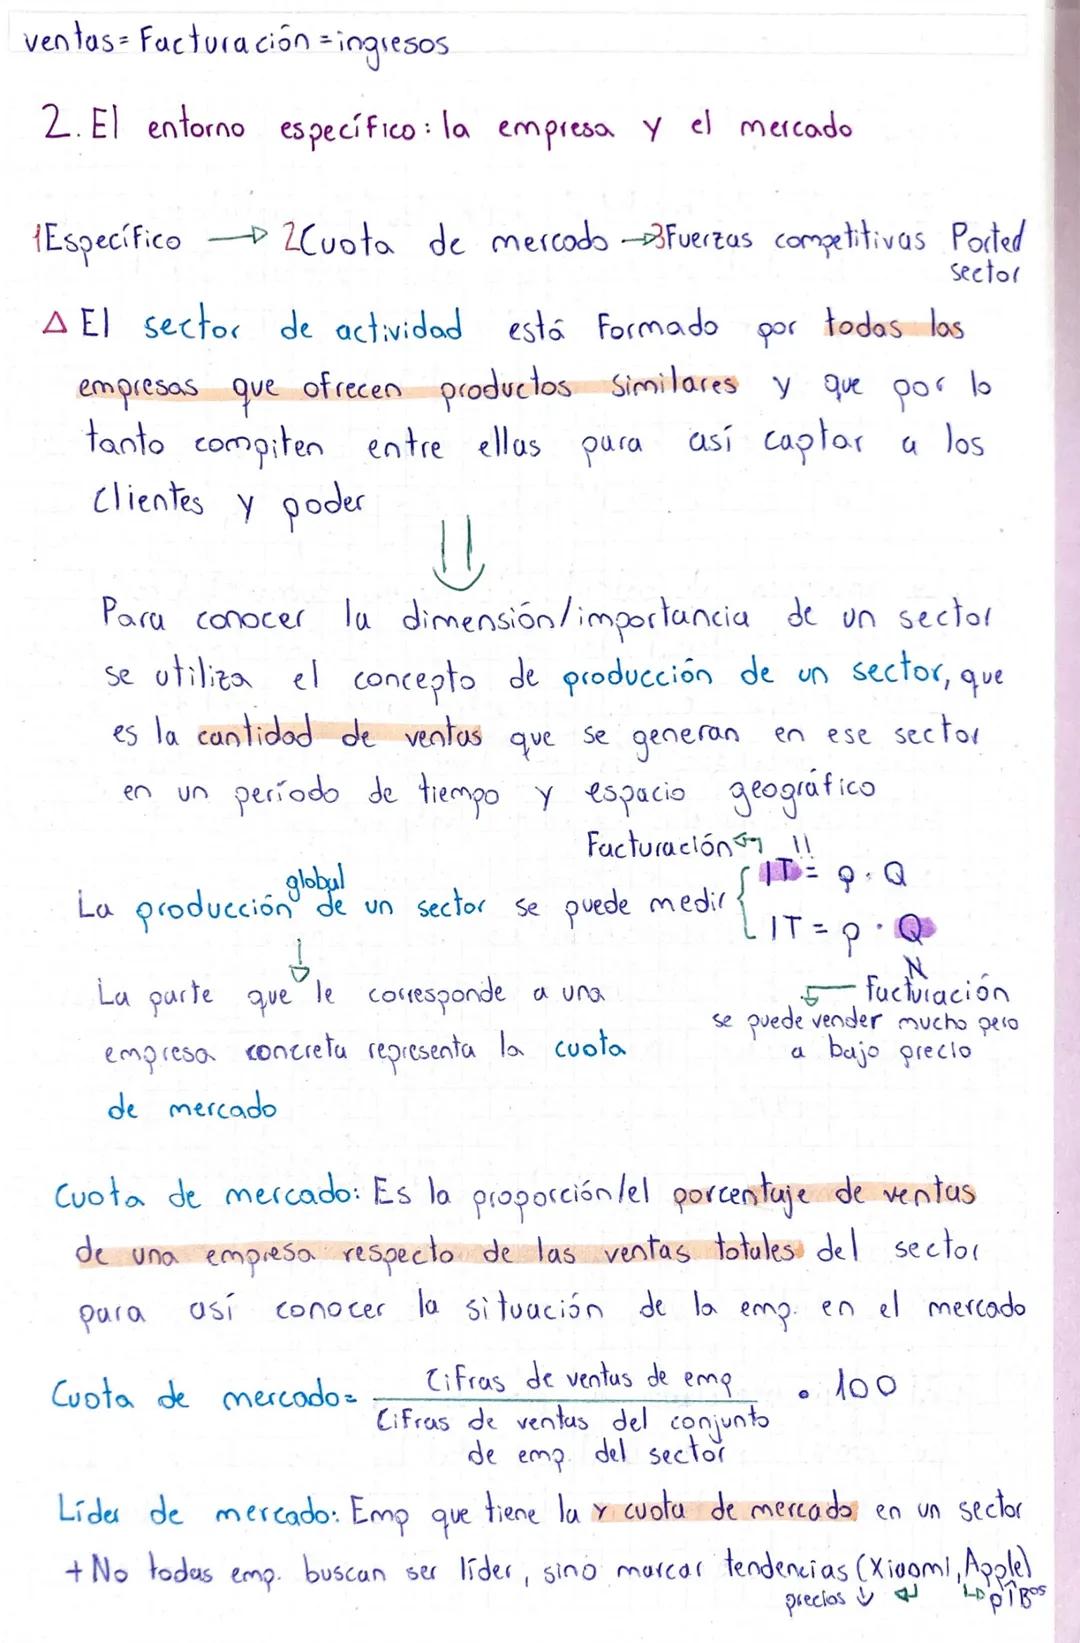 ventas = Facturación = ingresos
2. El entorno específico: la empresa y el mercado
1 Específico → 2 Cuota de mercado → 3 Fuerzas competitivas Ported
sector
△ El sector de actividad está formado por todas las
empresas que ofrecen productos similares y que por lo
tanto compiten entre ellas para así captar a los
clientes y poder
⇓
Para conocer la dimensión/importancia de un sector
se utiliza el concepto de producción de un sector, que
es la cantidad de ventas que se generan en ese sector
en un período de tiempo y espacio geográfico
Facturación !!
IT = p · Q
La producción global de un sector se puede medir
IT = p · Q
N
La parte que le corresponde a una
Facturación
se puede vender mucho pero
a bajo precio
empresa concreta representa la cuota
de mercado
Cuota de mercado: Es la proporción/el porcentaje de ventas
de una empresa respecto de las ventas totales del sector
para así conocer la situación de la emp. en el mercado
Cuota de mercado = Cifras de ventas de emp · 100
Cifras de ventas del conjunto
de emp. del sector
Líder de mercado: Emp que tiene la > cuota de mercado en un sector
+ No todas emp. buscan ser líder, sino marcar tendencias (Xiaomi, Apple)
precios ↓ ↳ p↑ Bºˢ